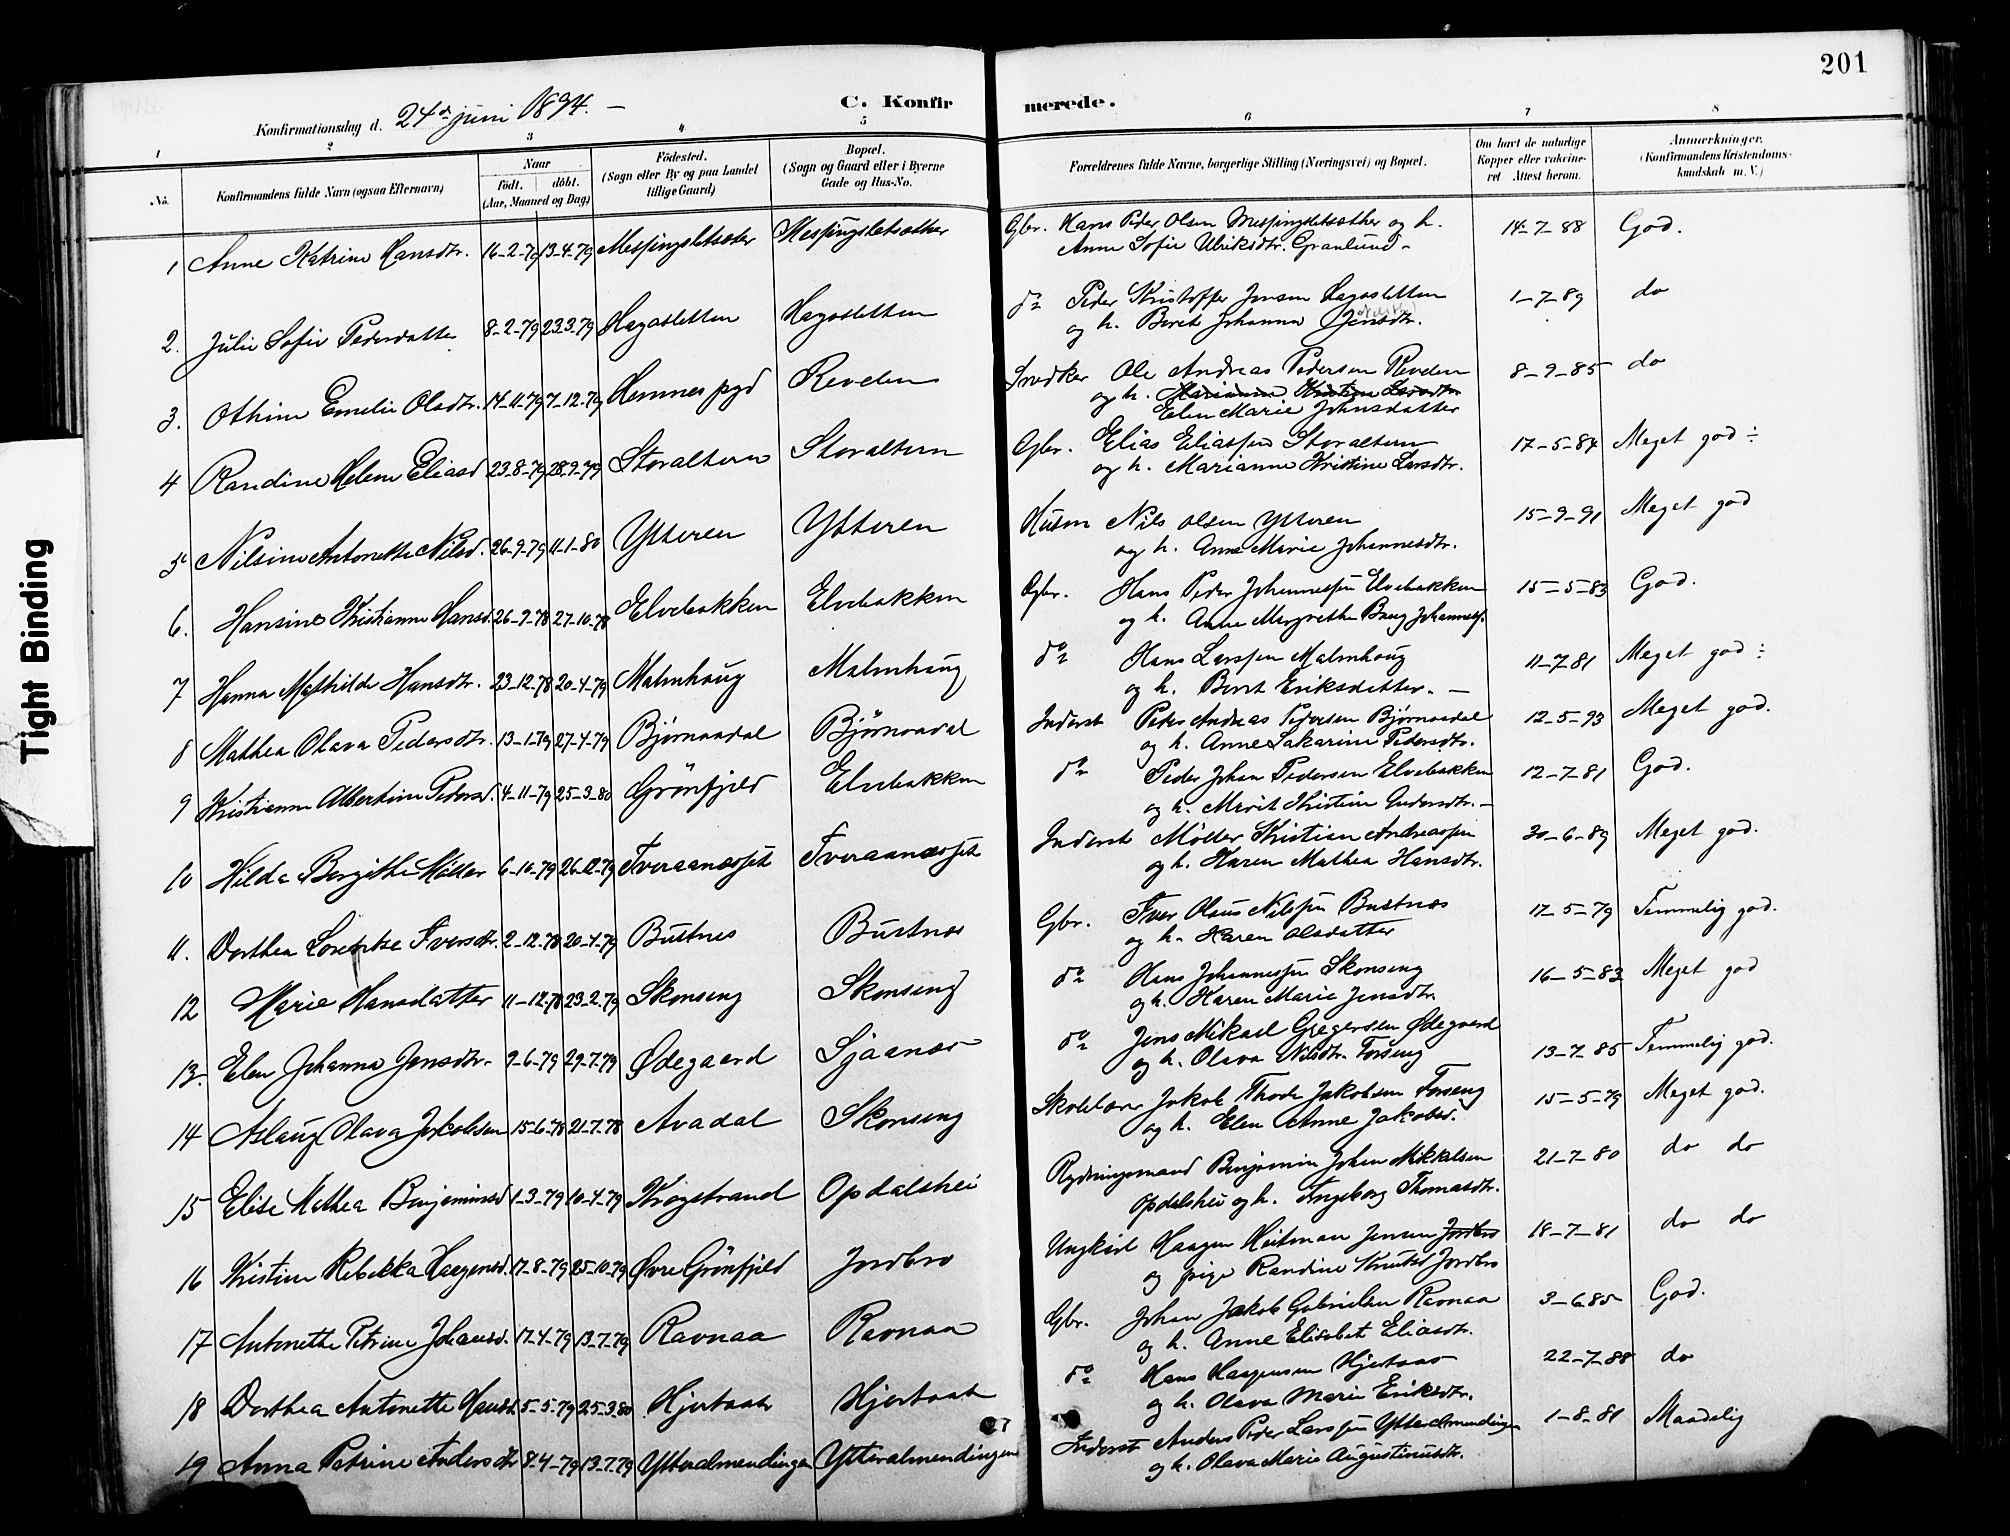 201
C. Konfirmerede.
Konfirmationsdag d. 24de juni 1894. –
1 2 3 4 5 6 7 8
No. Konfirmandens fulde Navn (ogsaa Efternavn) Naar født. døbt. (Aar, Maaned og Dag) Fødested. (Sogn eller By og paa Landet tillige Gaard) Bopæl. (Sogn og Gaard eller i Byerne Gade og Hus-No. Forældrenes fulde Navne, borgerlige Stilling (Næringsvei) og Bopæl. Om havt de naturlige Kopper eller vakcineret Attest herom. Anmærkninger. (Konfirmandens Kristendomskundskab m. V.)
1 Anne Katrine Hansdtr. 16-2-79 13-4-79 Mespingsletsæter Mespingsletsæther Gbr. Hans Peder Olsen Mespingsletsæther og h. 14-7-88 God.
Anne Sofie Ulriksdtr. Granlund –
2. Julie Sofie Pedersdatter 8-2-79 23.3.79 Hagasletten Hagasletten do Peder Kristoffer Jensen Hagasletten 1-7-89 do
og h. Beret Johanna Jensdtr.
3. Othine Emelie Olsdtr. 14-11-79 7-12-79 Hemnes pgd Revelen Snedker Ole Andreas Pedersen Revelen 8-9-85 do
og h. Marianne Kristine Larsdtr
Elen Marie Johnsdatter
4 Randine Helene Eliasd 23.8-79 28-9-79 Storalteren Storaltern Gbr. Elias Eliassen Storaltern 17-5-84 Meget god ÷
og h. Marianne Kristine Larsdtr.
5 Nilsine Antonette Nilsd. 26-9-79 11-1-80 Ytteren Ytteren Husm Nils Olsen Ytteren 15-9-91 Meget god
og h. Anne Marie Johannesdtr.
6. Hansine Kristianne Hansd. 26-9-78 27-10-78 Elvebakken Elvebakken Gbr. Hans Peder Johannessen Elvebakken 15-5-83 God.
og h. Anne Margrethe Baug Johannesd.
7 Hanna Mathilde Hansdtr. 23-12-78 20-4-79 Malmhaug Malmhaug do Hans Larssen Malmhaug 11-7-81 Meget god ÷
og h. Beret Eriksdatter. –
8 Mathea Olava Pedersdtr. 13-1-79 27-4-79 Bjørnaadal Bjørnaadal Inderst Peder Andreas Pedersen Bjørnaadal 12-5-93 Meget god.
og h. Anne Sakarine Pedersdtr.
9 Kristianne Albertine Pedersd. 4-11-79 25-3-80 Grønfjeld Elvebakken do Peder Johan Pedersen Elvebakken 12-7-81 God.
og h. Merit Kristine Andersdtr. –
10 Hilda Bergitha Møller 6-10-79 26-12-79 Tveraanæsset Tveraanæsset Inderst Møller Kristian Andreassen 30-6-89 Meget god.
og h. Karen Mathea Hansdtr.
11. Dorthea Lorentse Iversdtr. 2-12-78 20-4-79 Bustnes Bustnes Gbr. Iver Olaus Nilssen Bustnes 17-5-79 Temmelig god.
og h. Karen Olsdatter
12 Marie Hansdatter 11-12-78 23-2-79 Skonseng Skonseng do Hans Johannessen Skonseng 16-5-83 Meget god
og h. Karen Marie Jensdtr
13. Elen Johanna Jensdtr. 9-6-79 29-7-79 Ødegaard Sjaanes do Jens Mikael Gregersen Ødegaard 13-7-85 Temmelig god.
og h. Olava Nilsdtr. Forseng
14 Aslaug Olava Jakobsen 15-6-78 21-7-78 Avadal Skonseng Skolelærer Jakob Thode Jakobsen Forseng 15-5-79 Meget god.
og h. Elen Anne Jakobsd.
15 Elise Mathea Benjaminsd 1-3-79 10-4-79 Krogstrand Opdalshei Rydningsmand Benjamin Johan Mikkelsen 21-7-80 do do
Opdalshei og h. Ingeborg Thomasdtr.
16 Kristine Rebekka Haagensd. 17-8-79 25-10-79 Øvre Grønfjeld Jordbro Ungkarl Haagen Heitman Jensen Jordbro 18-7-81 do do
og pige Randine Knutsd Jordbro
17 Antonette Petrine Johansd. 17-4-79 13-7-79 Ravnaa Ravnaa Gbr. Johan Jakob Gabrielsen Ravnaa 3-6-85 God.
og h. Anne Elisabet Eliasdtr.
18 Dorthea Antonette Hansd. 5-5-79 25-3-80 Hjertaas Hjertaas do Hans Haagensen Hjertaas 22-7-88 do
og h. Olava Marie Eriksdtr.
19 Anna Petrine Andersdtr 8-4-79 13-7-79 Ytteralmendingen Ytteralmendingen Inderst Anders Peder Larssen Ytteralmendingen 1-8-81 Maadelig
og h. Olava Marie Augustinusdtr.
Tight Binding